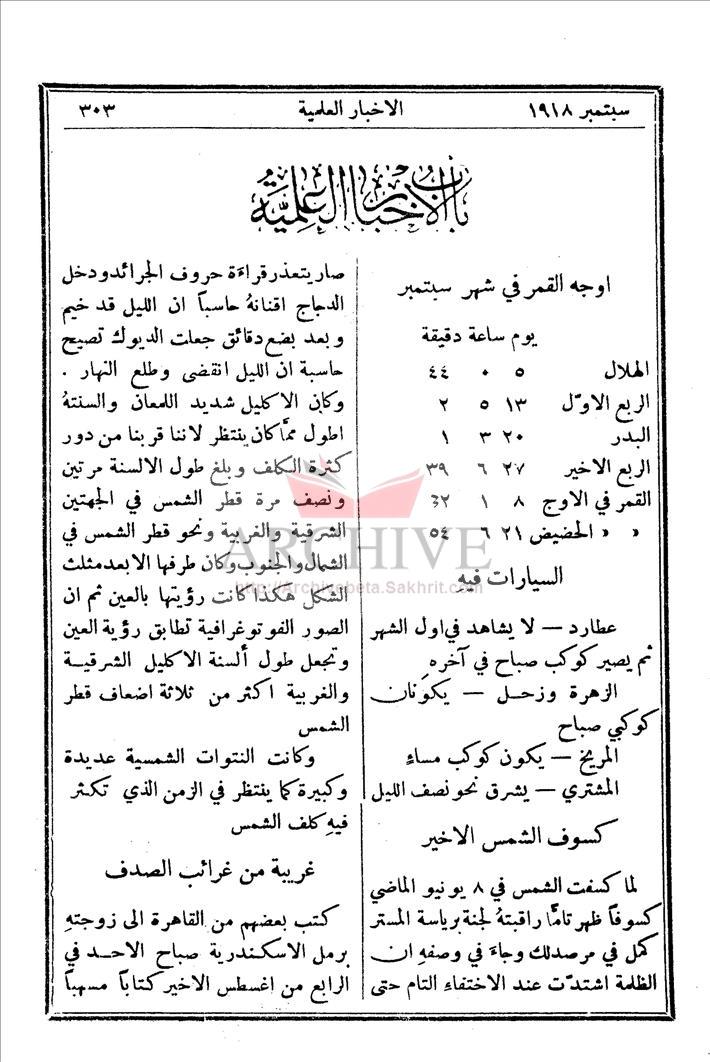 سبتمبر ١٩١٨ الاخبار العلمية ٣٠٣
باب الاخبار العلمية
اوجه القمر في شهر سبتمبر
يوم ساعة دقيقة
الهلال ٥ ٠ ٤٤
الربع الاوّل ١٣ ٥ ٢
البدر ٢٠ ٣ ١
الربع الاخير ٢٧ ٦ ٣٩
القمر في الاوج ٨ ١ ٣٢
« « الحضيض ٢١ ٦ ٥٤
السيارات فيه
عطارد — لا يشاهد في اول الشهر
ثم يصير كوكب صباح في آخره
الزهرة وزحل — يكونان
كوكبي صباح
المريخ — يكون كوكب مساء
المشتري — يشرق نحو نصف الليل
كسوف الشمس الاخير
لما كسفت الشمس في ٨ يونيو الماضي
كسوفاً ظهر تامًّا راقبتهُ لجنة برياسة المستر
كمل في مرصدلك وجاءَ في وصفهِ ان
الظلمة اشتدّت عند الاختفاءِ التام حتى
صار يتعذر قراءة حروف الجرائد ودخل
الدجاج اقنانهُ حاسباً ان الليل قد خيم
وبعد بضع دقائق جعلت الديوك تصيح
حاسبة ان الليل انقضى وطلع النهار .
وكان الاكليل شديد اللمعان والسنتهُ
اطول ممَّا كان ينتظر لاننا قربنا من دور
كثرة الكلف وبلغ طول الالسنة مرتين
ونصف مرة قطر الشمس في الجهتين
الشرقية والغربية ونحو قطر الشمس في
الشمال والجنوب وكان طرفها الابعد مثلث
الشكل هكذا كانت رؤيتها بالعين ثم ان
الصور الفوتوغرافية تطابق رؤية العين
وتجعل طول ألسنة الاكليل الشرقية
والغربية اكثر من ثلاثة اضعاف قطر
الشمس
وكانت النتوات الشمسية عديدة
وكبيرة كما ينتظر في الزمن الذي تكثر
فيهِ كلف الشمس
غريبة من غرائب الصدف
كتب بعضهم من القاهرة الى زوجتهِ
برمل الاسكندرية صباح الاحد في
الرابع من اغسطس الاخير كتاباً مسهباً
ARCHIVE
http://Archivebeta.Sakhrit.com